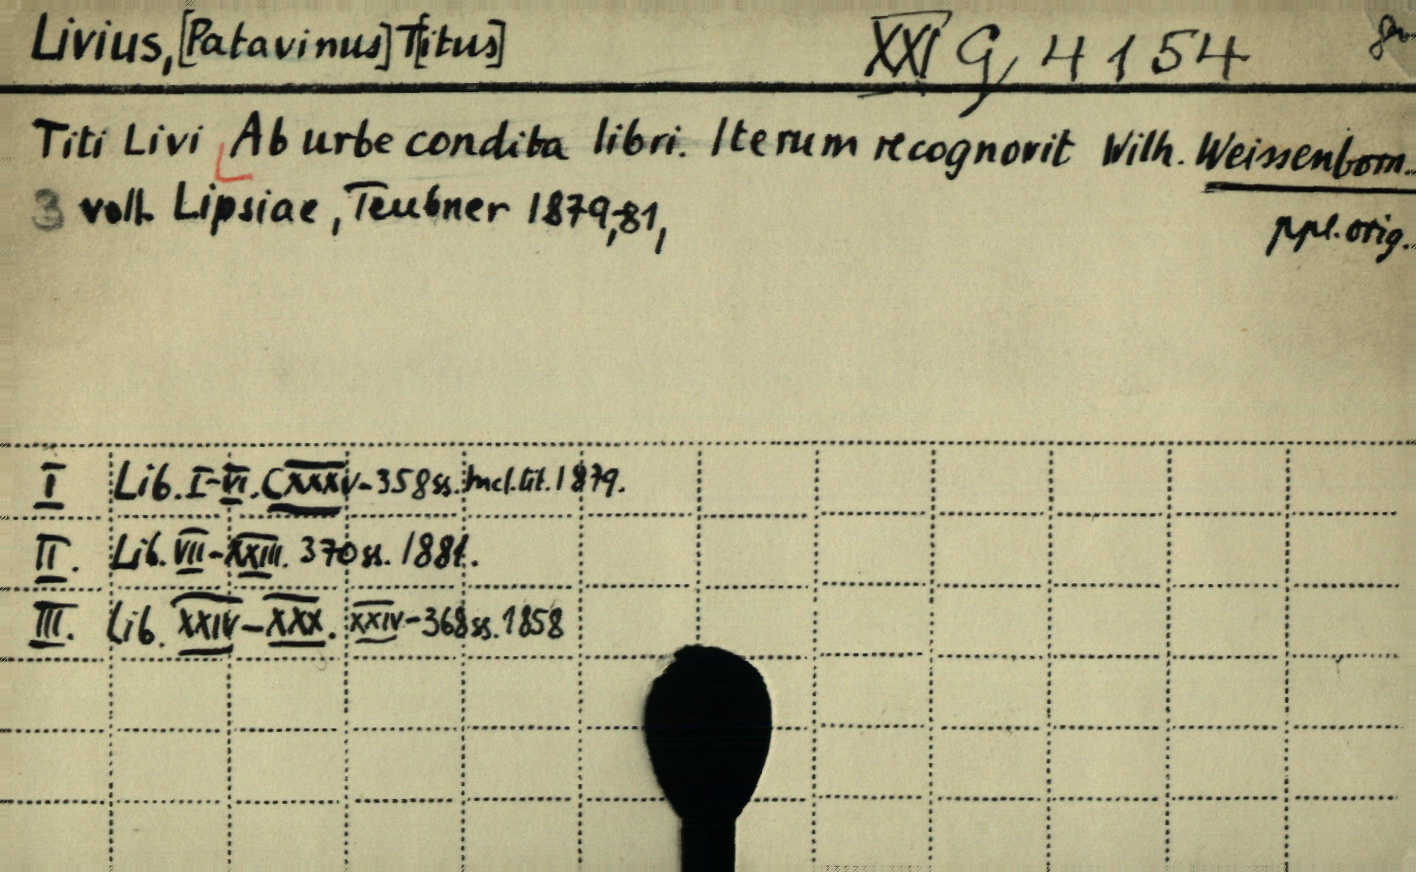 Livius, [Patavinus] T[itus] XXI G 4154
Titi Livi Ab urbe condita libri. Iterum recognovit Wilh. Weissenborn.
3 voll. Lipsiae, Teubner 1879,-81,
ppl. orig.
I Lib. I-VI. CXXXIV-358 ss. Incl. tit. 1879.
II. Lib. VII-XXIII. 370 ss. 1881.
III. Lib. XXIV-XXX. XXIV-368 ss. 1858